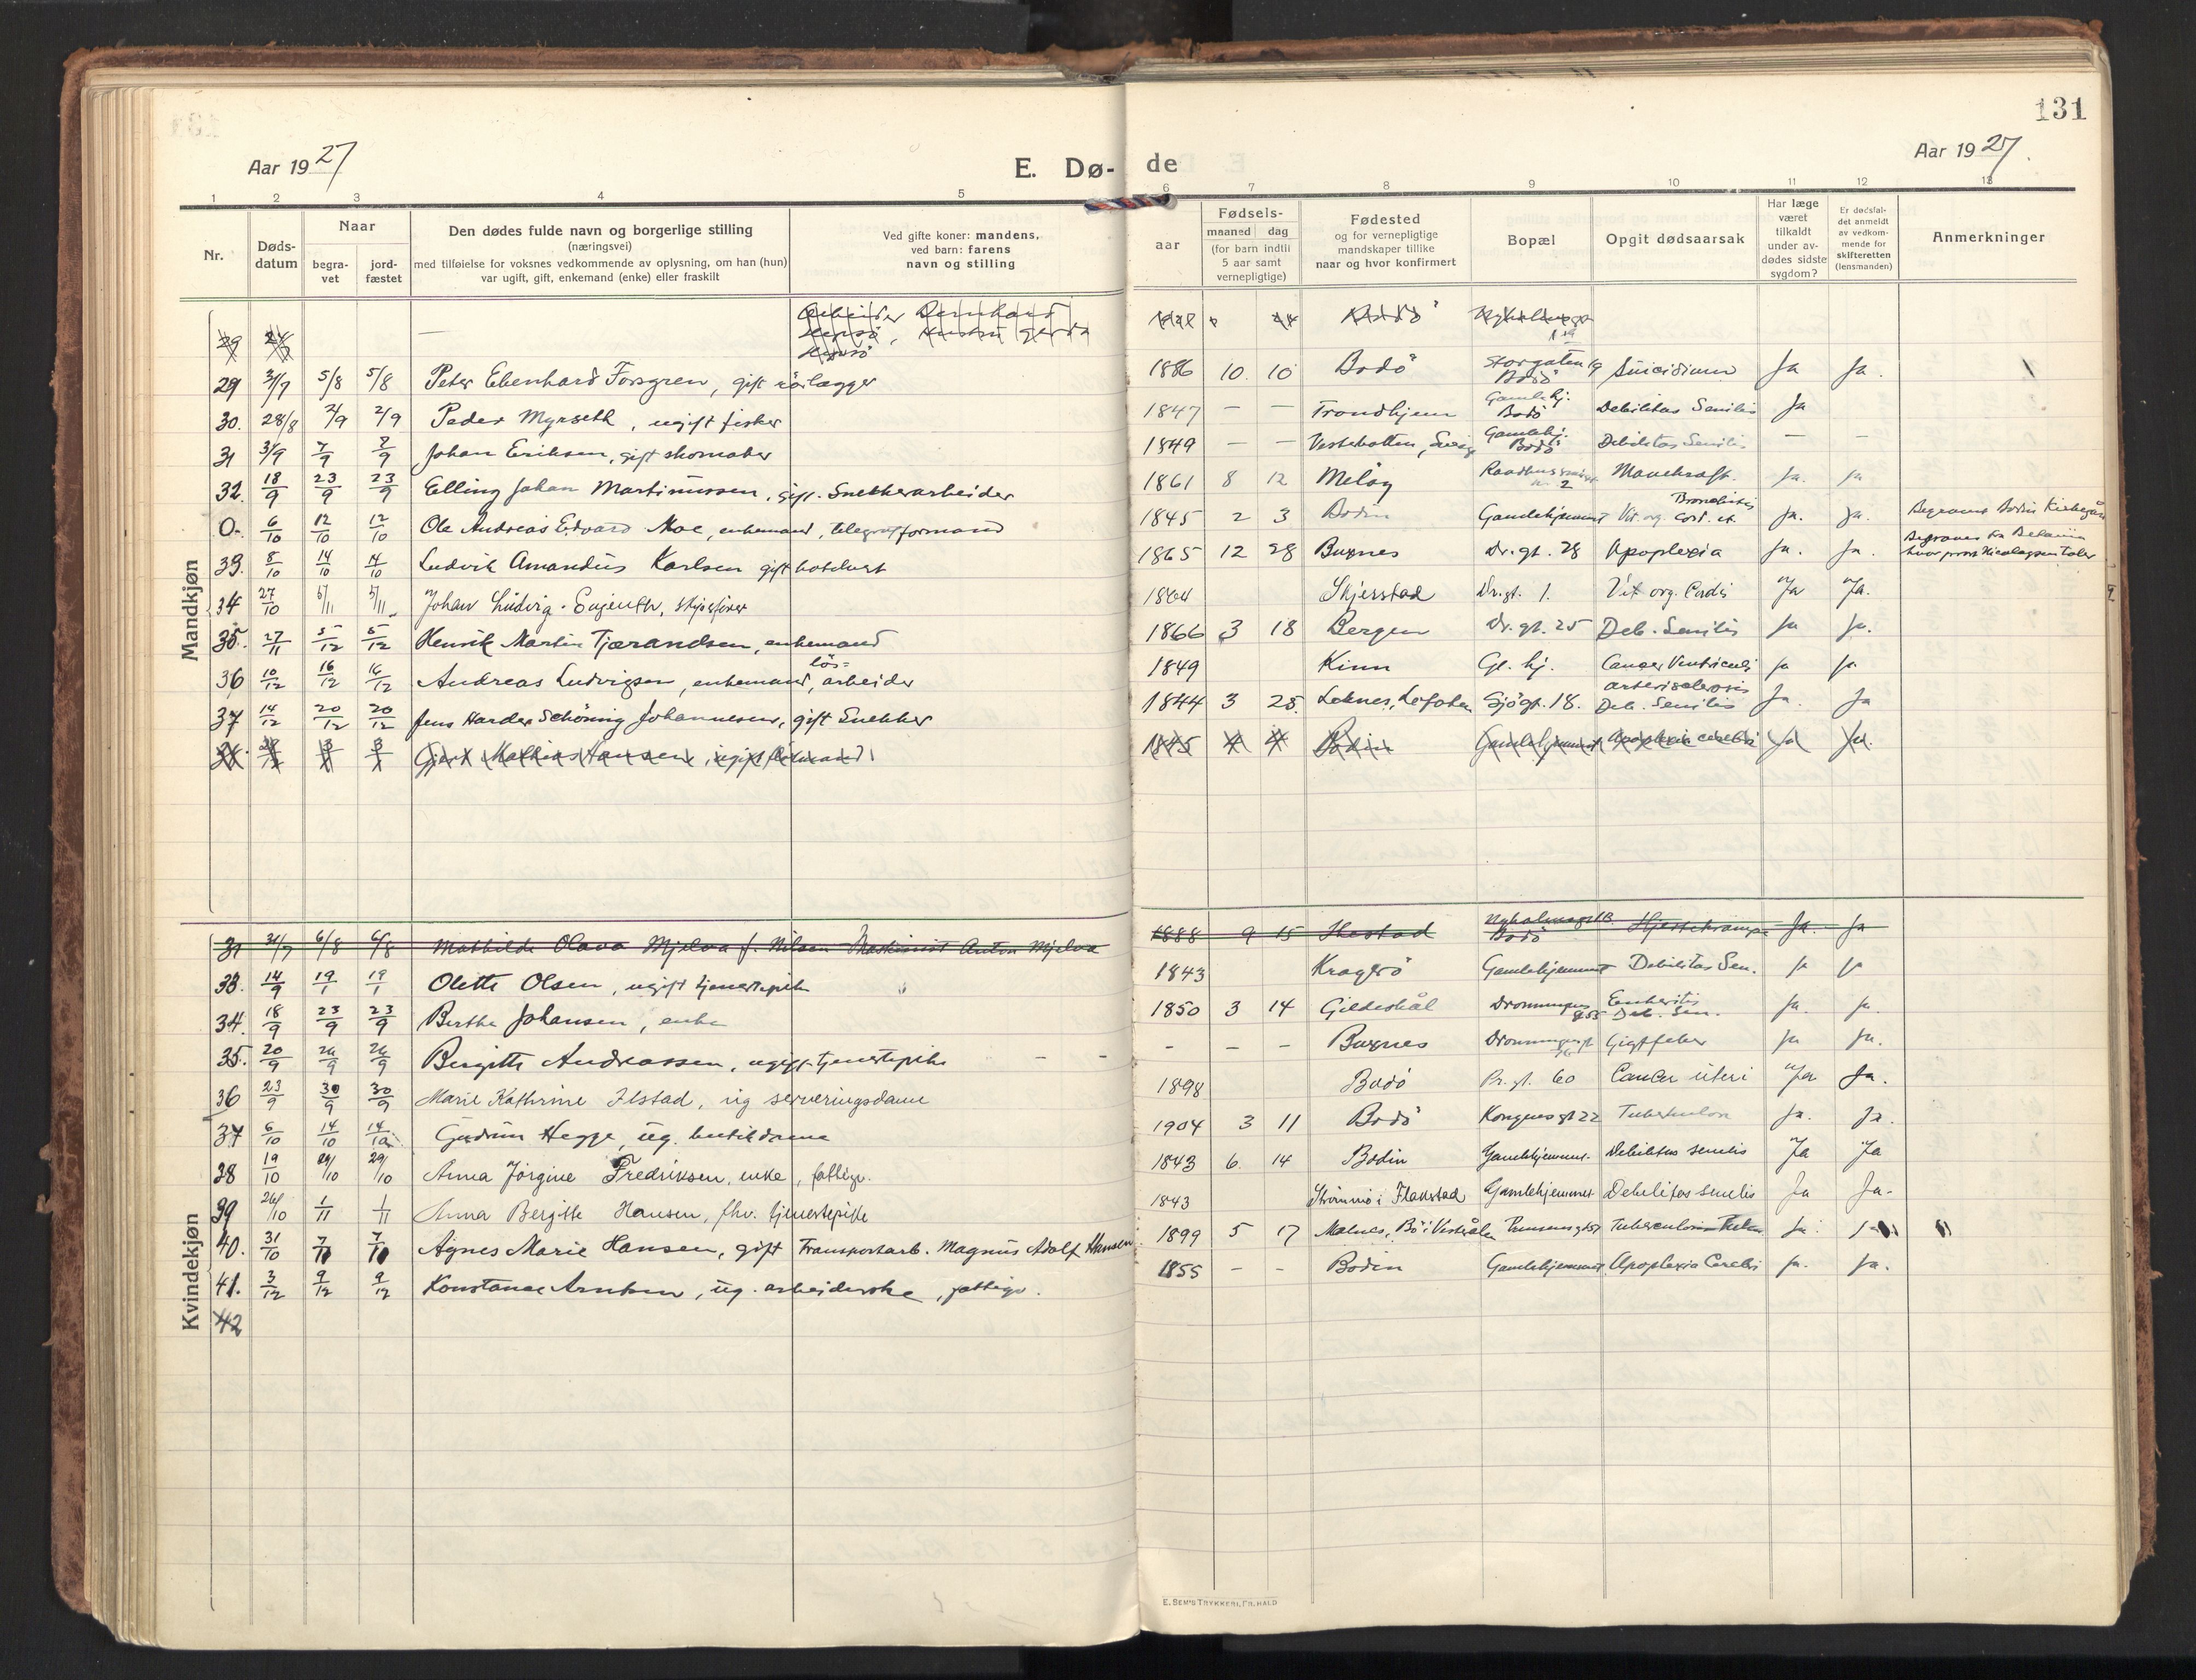 131
Aar 1927
E. Dø-de
Aar 1927.
1 2 3 4 5 6 7 8 9 10 11 12 13
Nr.
Døds-
datum
Naar
begra-
vet
jord-
fæstet
Den dødes fulde navn og borgerlige stilling
(næringsvei)
med tilføielse for voksnes vedkommende av oplysning, om han (hun)
var ugift, gift, enkemand (enke) eller fraskilt
Ved gifte koner: mandens,
ved barn: farens
navn og stilling
aar
Fødsels-
maaned dag
(for barn indtil
5 aar samt
vernepligtige)
Fødested
og for vernepligtige
mandskaper tillike
naar og hvor konfirmert
Bopæl
Opgit dødsaarsak
Har læge
været
tilkaldt
under av-
dødes sidste
sygdom?
Er dødsfal-
det anmeldt
av vedkom-
mende for
skifteretten
(lensmanden)
Anmerkninger
Mandkjøn
29 Arbeider Bernhard
29 31/7 5/8 5/8 Peter Ebenhard Forsgren, gift rörlægger 1886 10 10 Bodö Storgaten 19 Bodö Suicidium Ja Ja.
30. 28/8 2/9 2/9 Peder Myrseth, ugift fisker 1847 — — Trondhjem Gamlehj. Bodö Debilitas Senilis Ja
31 3/9 7/9 7/9 Johan Eriksen, gift skomaker 1849 — — Vesterbotten, Gamlehj. Bodö Debilitas Senilis — —
32. 18/9 23/9 23/9 Elling Johan Martinussen, gift. Snekkerarbeider 1861 8 12 Meløy 2 Ja. Ja
0. 6/10 12/10 12/10 Ole Andreas Edvard Moe, enkemand, telegrafformand 1845 2 3 Bodin Gamlehjemmet Vit. org. cord. et. Bronchitis Ja. Ja. Begravet Bodin Kirkegård
33. 8/10 14/10 14/10 Ludvik Amandus Karlsen gift hotelvert 1865 12 28 Buxnes Dr.gt. 28 Apoplexia Ja. Ja. Begraves fra Betania
34 27/10 5/11 5/11 Johan Ludvig Sujenth, skipsfører 1864 Skjerstad Dr.gt. 1. Vit org. Cordis Ja Ja.
35. 27/11 5/12 5/12 Henrik Martin Tjærandsen, enkemand 1866 3 18 Bergen Dr. gt. 25 Deb. Senilis Ja Ja.
36 10/12 16/12 16/12 Andreas Ludvigsen, enkemand, løs= arbeider 1849 Kinn Gl. hj. Cancer Ventriculi Ja Ja
37 14/12 20/12 20/12 Jens Harder Schöning Johannesen, gift Snekker 1844 3 28. Leknes, Lofoten Sjögt. 18. arteriosclerosis Deb. Senilis Ja. Ja
Mathias Hansen, ugift 1845 Bodin Gamlehjemmet Apoplexia cerebri Ja Ja.
Kvindekjøn
31 31/7 6/8 6/8 Mathilde Olava Mjelva f. Nilsen Maskinist Anton Mjelva 1888 9 15 Bodö Hjertekrampe Ja. Ja
33. 14/9 19/1 19/1 Olette Olsen, ugift tjenestepike 1843 Kragerö Gamlehjemmet Debilitas Sen. Ja Ja
34. 18/9 23/9 23/9 Berthe Johansen, enke 1850 3 14 Gildeskål Deb. Sen. Ja. Ja.
35. 20/9 26/9 26/9 Bergitte Andreassen, ugift tjenestepike — — — — — Buxnes Gigtfeber Ja Ja.
36 23/9 30/9 30/9 Marie Kathrine Ilstad, ug serveringsdame 1898 Bodö Pr. gt. 60 Cancer uteri Ja Ja.
37 6/10 14/10 14/10 Gudrun Hegge, ug. butikdame 1904 3 11 Bodö Kongens gt 22 Tuberkulose Ja. Ja.
38 19/10 29/10 29/10 Anna Jörgine Fredriksen, enke, fattigu. 1843 6. 14 Bodin Gamlehjemmet. Debilitas senilis Ja Ja
39 26/10 1/11 1/11 Anna Bergitte Hansen, fhv. tjenestepike 1843 i Flakstad Gamlehjemmet Debilitas senilis Ja Ja.
40. 31/10 7/11 7/11 Agnes Marie Hansen, gift Transportarb. Magnus Adolf Hansen 1899 5 17 Malnes, Bö i Vesterålen Ja.
41. 3/12 9/12 9/12 Konstance Arntsen, ug. arbeiderske, fattigu. 1855 — — Bodin Gamlehjemmet Apoplexia Cerebri Ja. Ja.
42
E. SEM'S TRYKKERI, FR.HALD